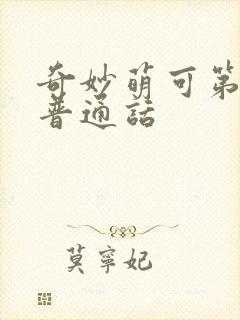 奇妙萌可第
普通話
莫寧妃